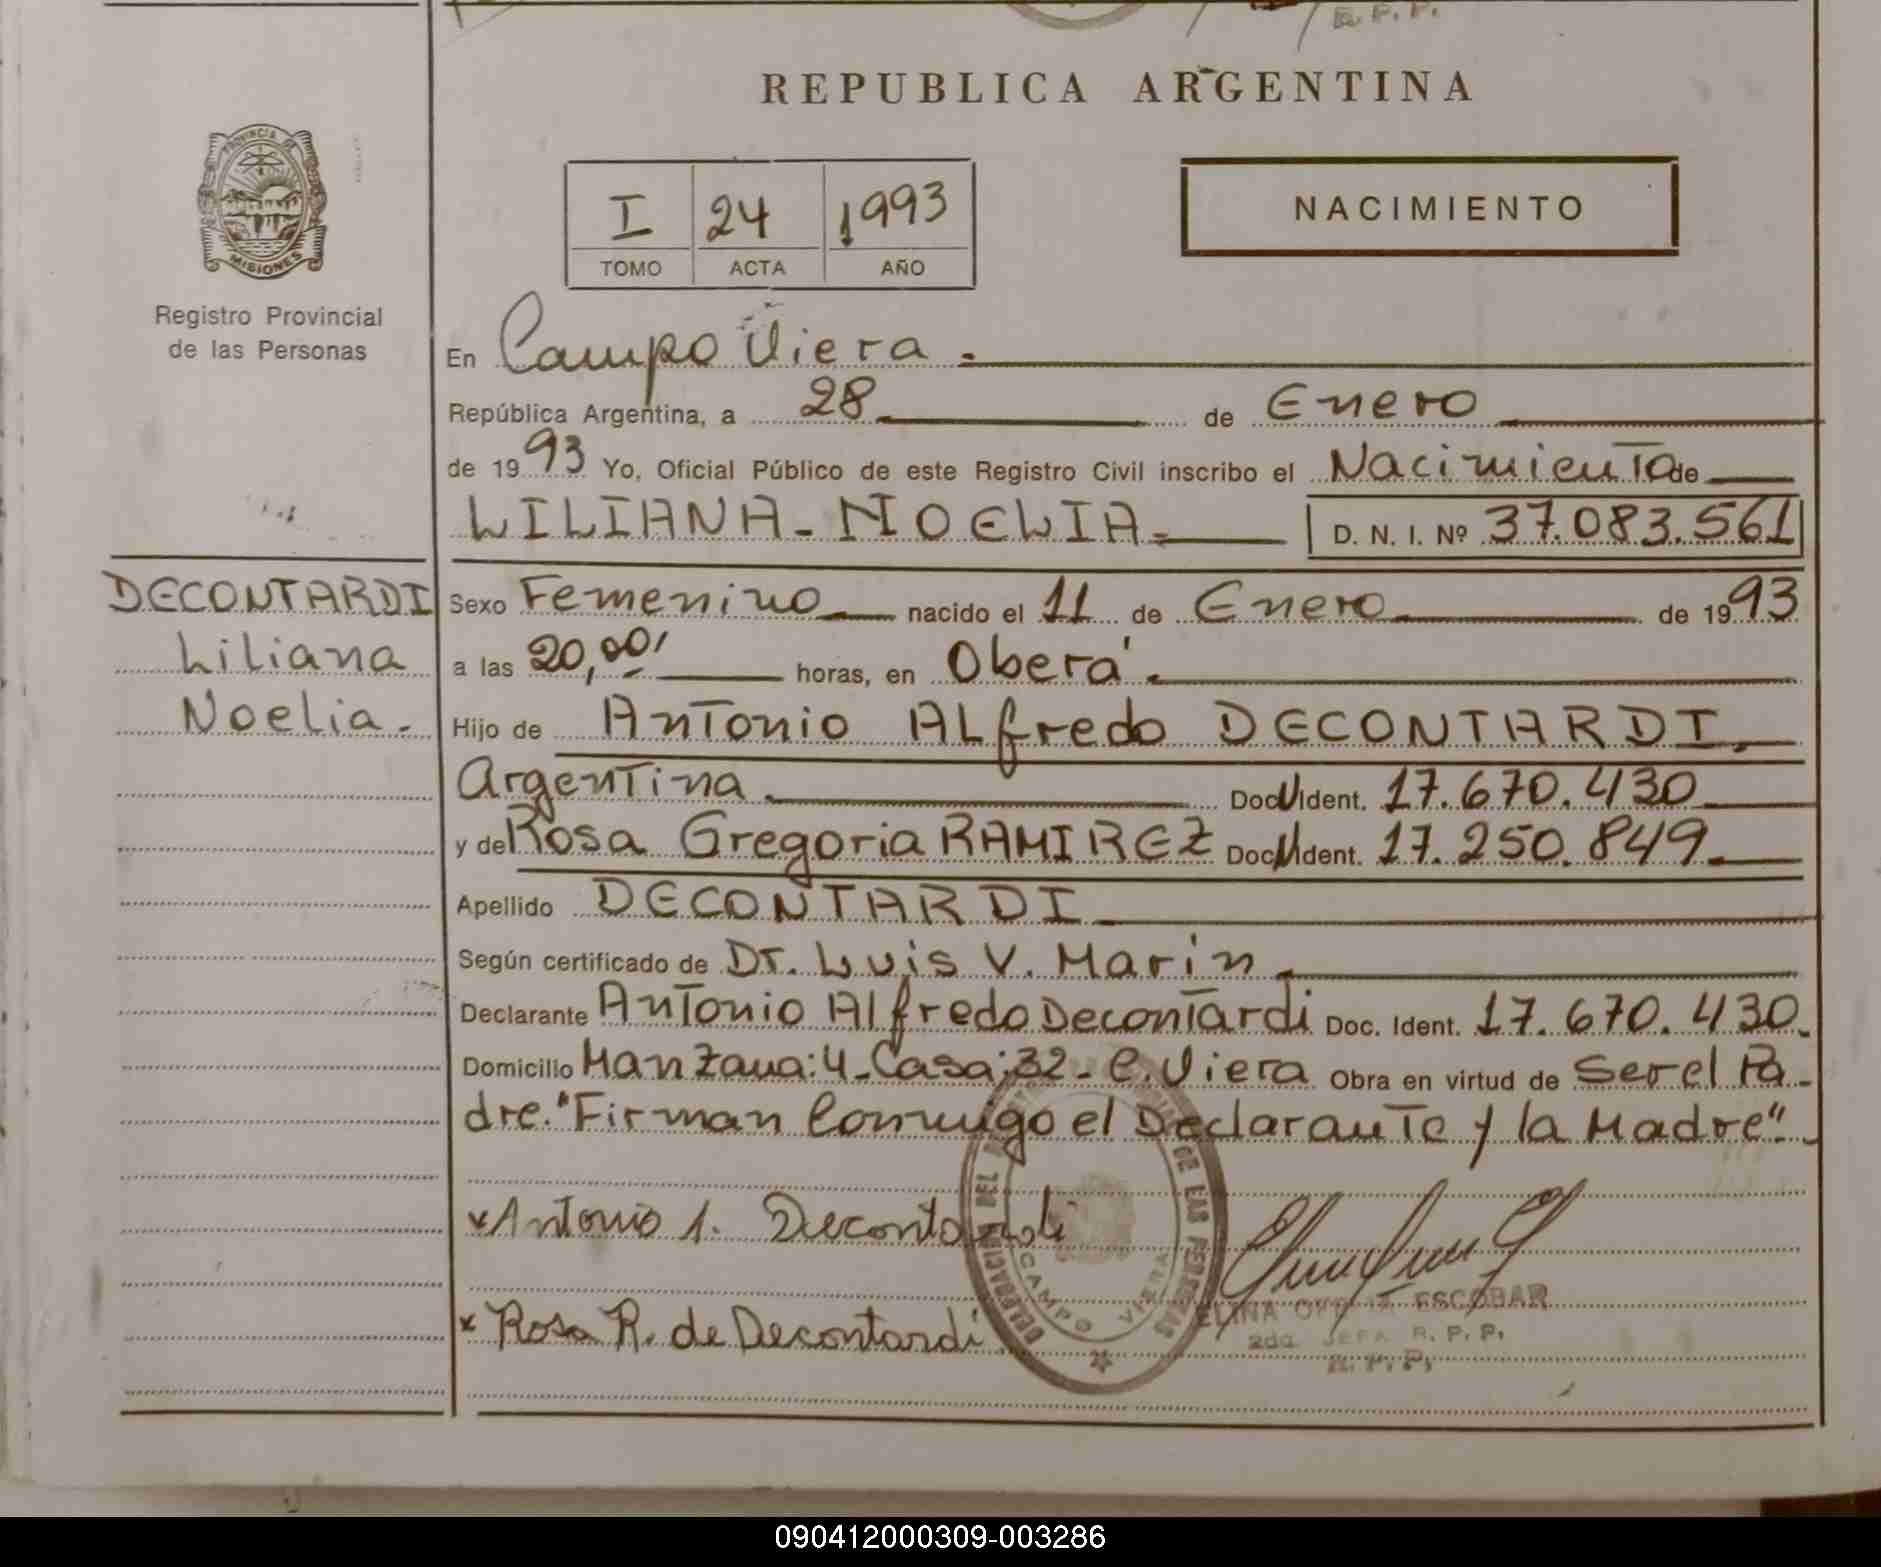 R. P. P.
REPUBLICA ARGENTINA
PROVINCIA DE
MISIONES
Registro Provincial
de las Personas
I 24 1993
TOMO ACTA AÑO
NACIMIENTO
En Campo Viera.-
República Argentina, a 28 de Enero
de 1993 Yo, Oficial Público de este Registro Civil inscribo el Nacimiento de
LILIANA-NOELIA.- D. N. I. Nº 37.083.561
DECONTARDI
Liliana
Noelia.-
Sexo Femenino nacido el 11 de Enero de 1993
a las 20,00' horas, en Oberá.
Hijo de Antonio ALfredo DECONTARDI.
Argentina Doc. Ident. 17.670.430
y de Rosa Gregoria RAMIREZ Doc. Ident. 17.250.849.
Apellido DECONTARDI
Según certificado de Dr. Luis V. Marin
Declarante Antonio Alfredo Decontardi Doc. Ident. 17.670.430.
Domicilio Manzana:4-Casa:32- C. Viera Obra en virtud de Ser el Pa-
dre."Firman Conmigo el Declarante y la Madre".
*Antonio A. Decontardi
* Rosa R. de Decontardi
DELEGACION DEL DE LAS PERSONAS
CAMPO VIERA
ELINA ESCOBAR
2da JEFA R. P. P.
R. P. P.
090412000309-003286